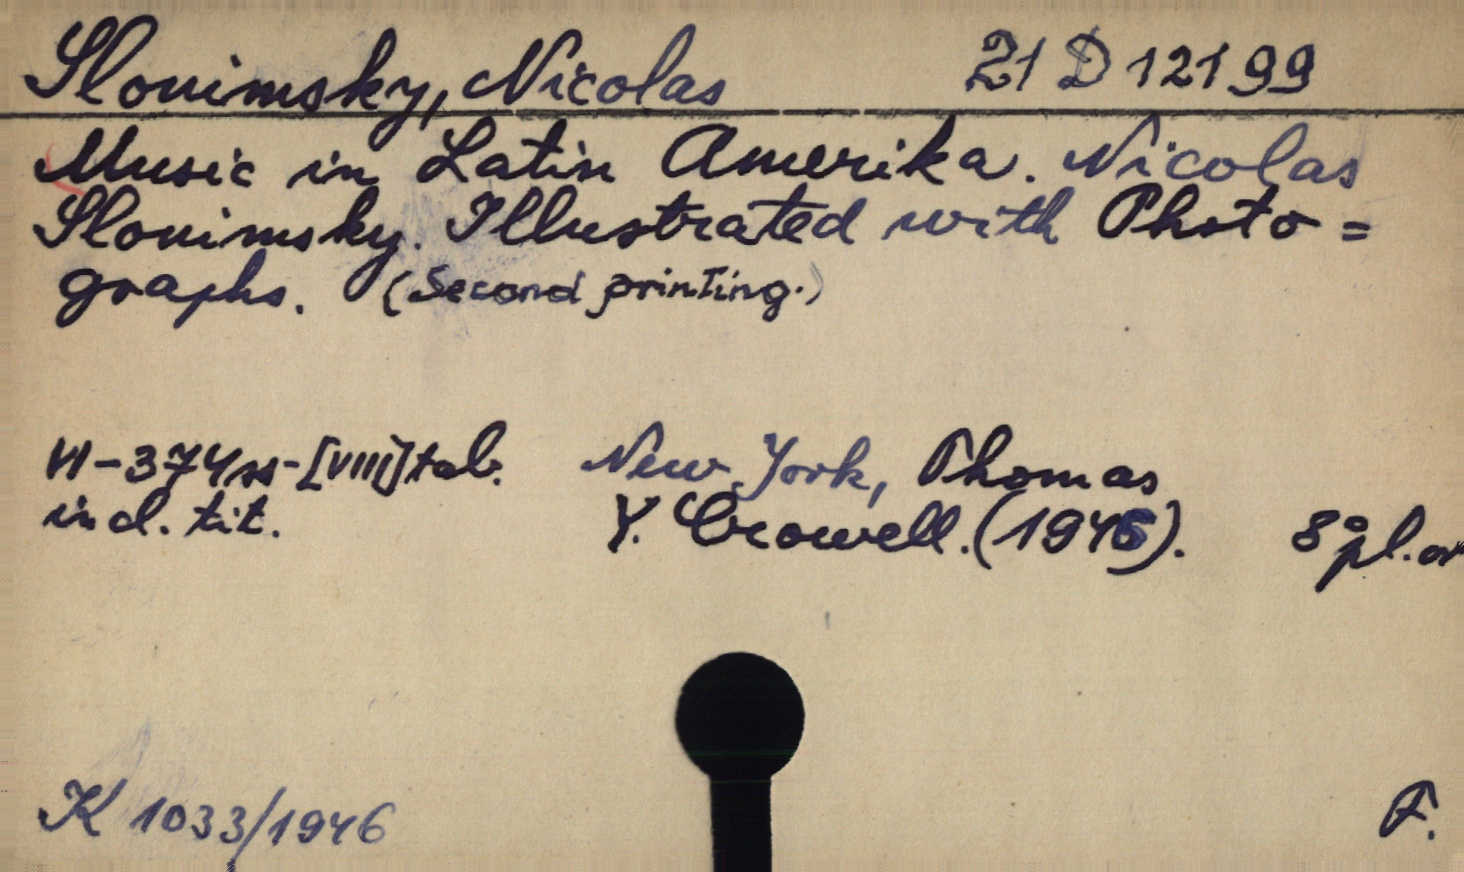 Slonimsky, Nicolas 21 D 12199
Music in Latin Amerika. Nicolas
Slonimsky. Illustrated with Photo=
graphs. (Second printing.)
VI-374 ss-[VIII] tab. New York, Thomas
incl. tit. Y. Crowell. (1946). 8° pl. or
K 1033/1946 F.